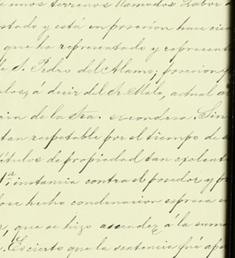 emos terrenos llamados Labor
stado y está en posesion hace
que ha representado y represent
de S. Pedro del Alamo, posesion
á decir del Sr. Malo, actual
cia de la Sra. Sin
tan respetable por el tiempo de
titulos de propiedad tan
1ª instancia contra el poseedor y
hecha condenacion
, que se hizo ascender á la suma
. Es cierto que la sentencia fué